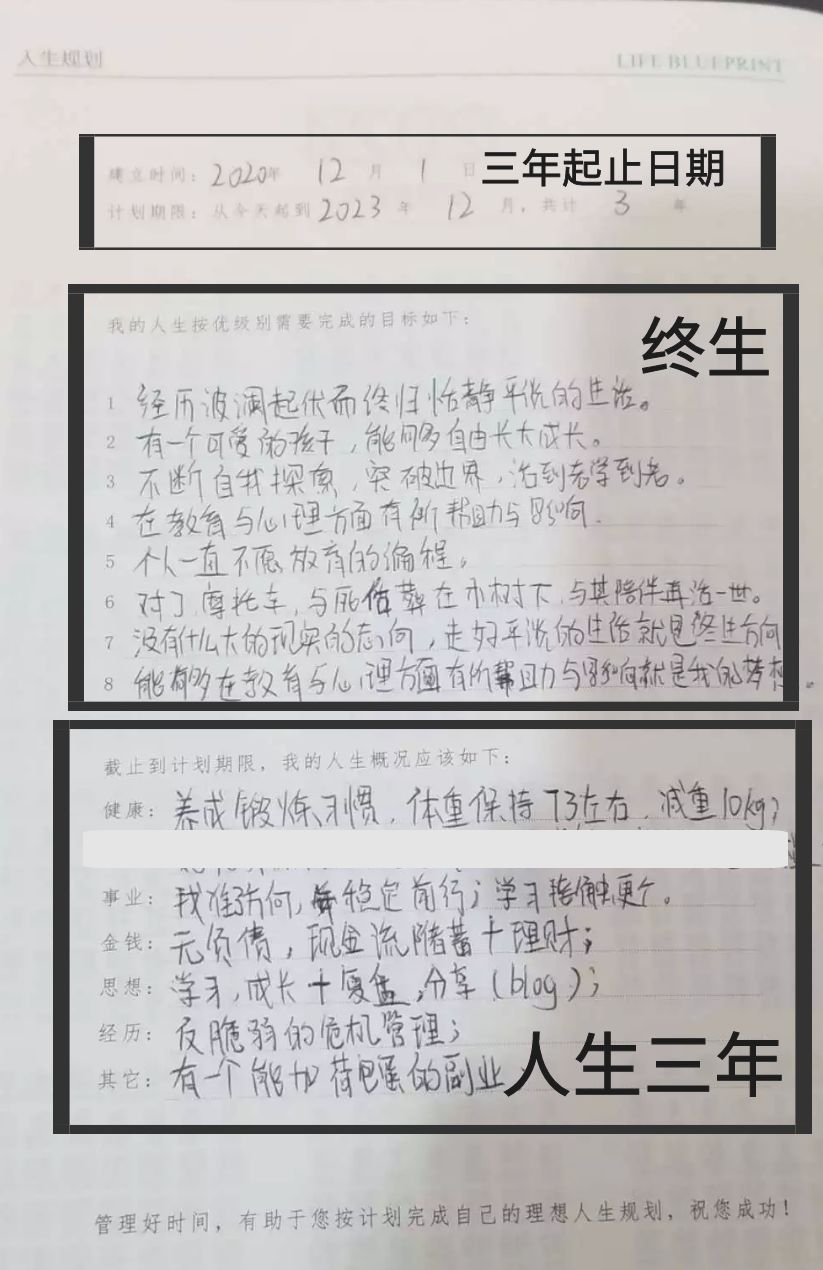 人生规划 LIFE BLUEPRINT
建立时间：2020年 12 月 1 日 三年起止日期
计划期限：从今天起到 2023 年 12 月，共计 3 年
我的人生按优级别需要完成的目标如下：
终生
1 经历波澜起伏而终归恬静平淡的生活。
2 有一个可爱的孩子，能够自由长大成长。
3 不断自我探索，突破边界，活到老学到老。
4 在教育与心理方面有所帮助与影响.
5 个人一直不愿放弃的编程。
6 对了摩托车，与死 葬在 树下，与其陪伴再活一世。
7 没有什么大的现实的志向，走好平淡的生活就是终生方向
8 能够在教育与心理方面有所帮助与影响就是我的梦想。
截止到计划期限，我的人生概况应该如下：
健康：养成锻炼习惯，体重保持73左右，减重10kg；
事业：我准方向，稳定前行；学习接触更个。
金钱：无负债，现金流储蓄+理财；
思想：学习，成长+复盘，分享（blog）；
经历：反脆弱的危机管理；
其它：有一个能加荷包蛋的副业
人生三年
管理好时间，有助于您按计划完成自己的理想人生规划，祝您成功！